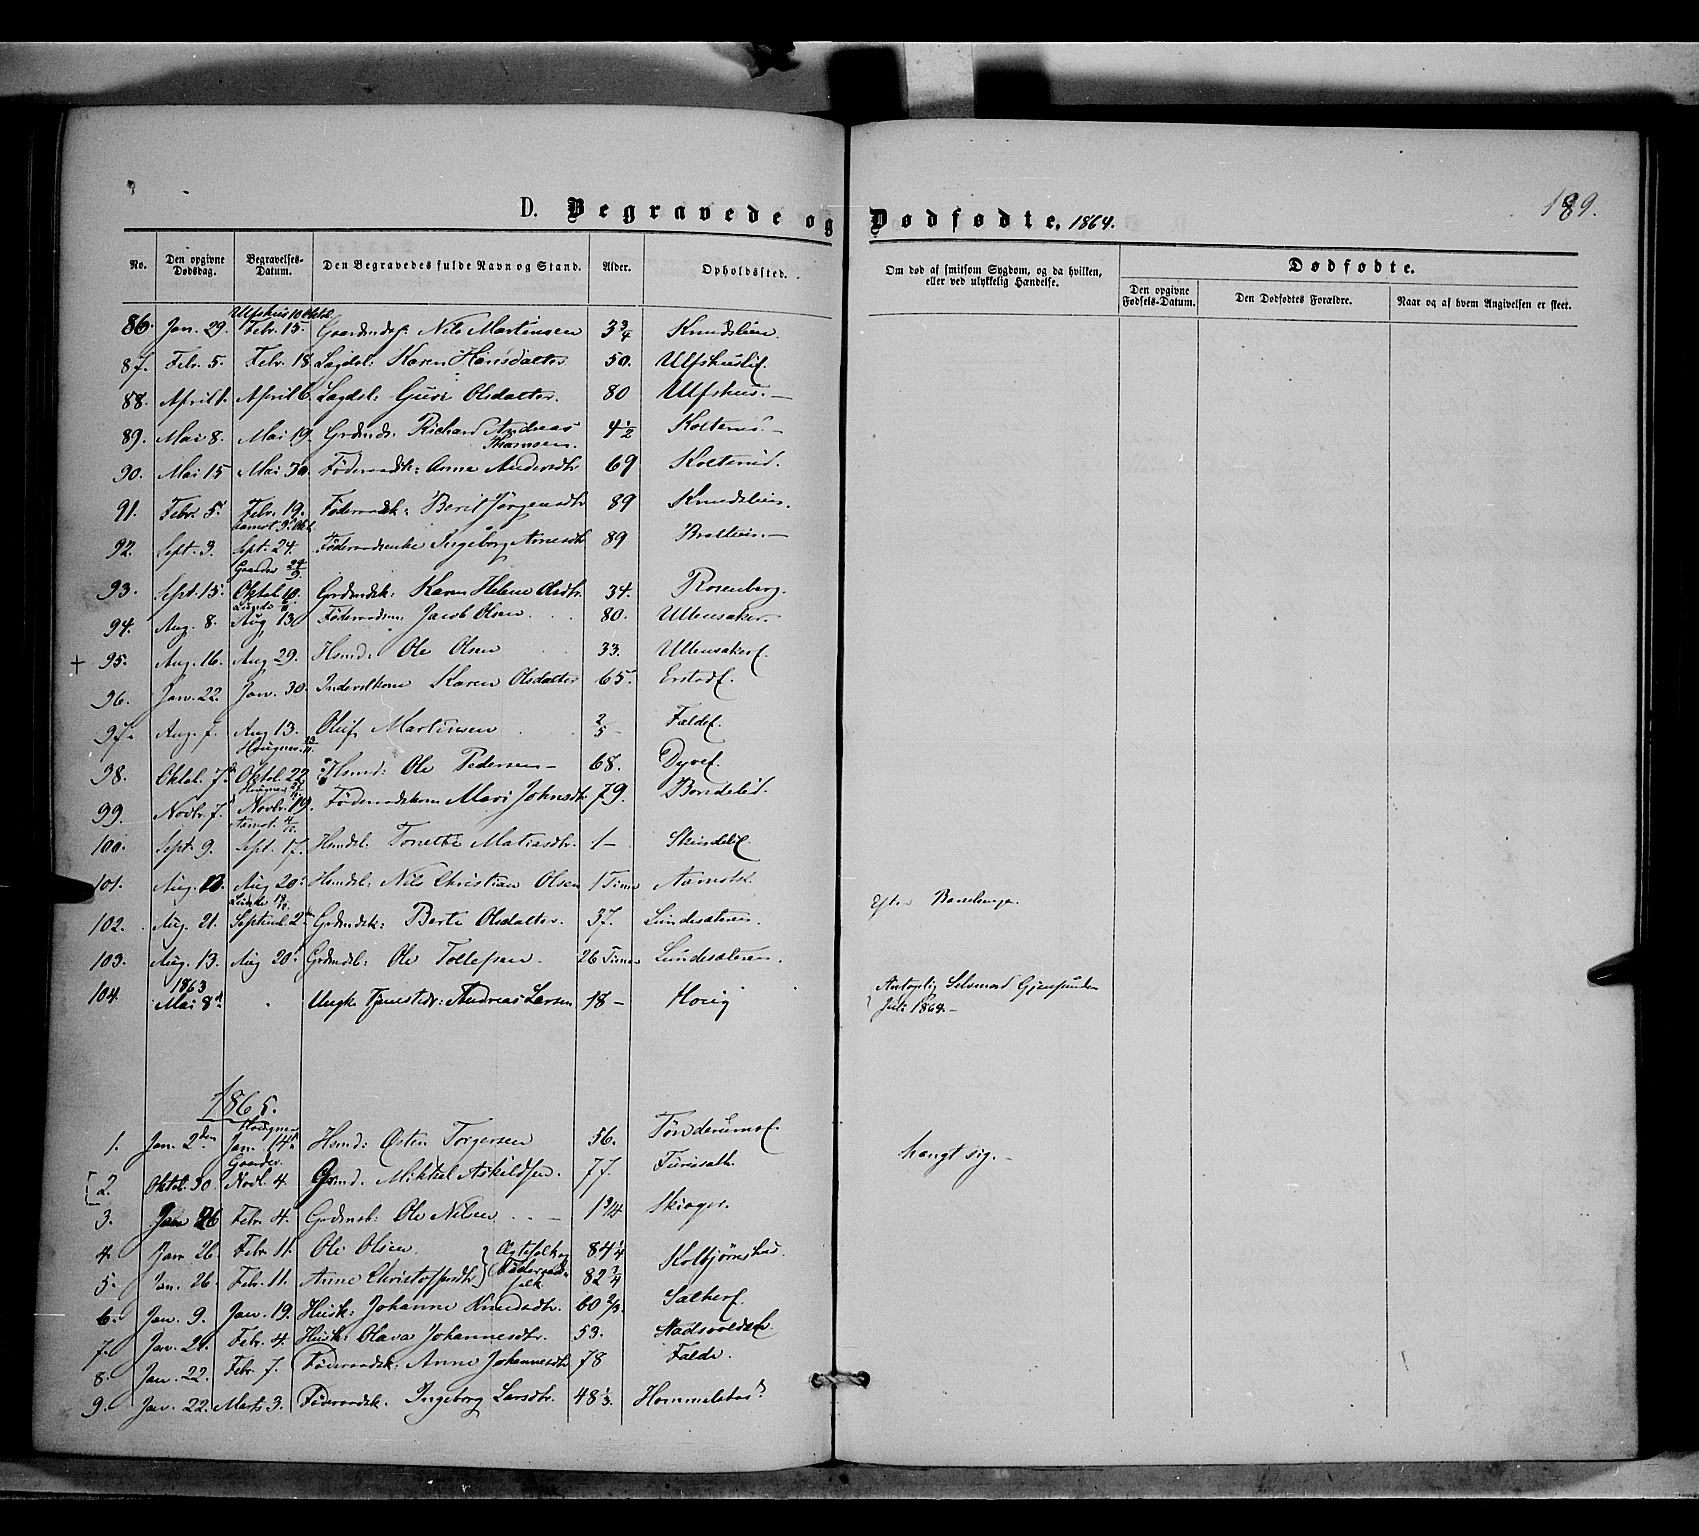 189.
D. Begravede og Dødfødte. 1864.
No. Den opgivne Dødsdag. Begravelses-Datum. Den Begravedes fulde Navn og Stand. Alder. Opholdssted. Om død af smitsom Sygdom, og da hvilken, eller ved ulykkelig Hændelse. Dødfødte.
Den opgivne Fødsels-Datum. Den Dødfødtes Forældre. Naar og af hvem Angivelsen er skeet.
86. Jan. 29. Febr. 13. Nils Martinsen 3 3/4 Knudslien
87. Febr. 5. Febr. 18 Lægdsl: Karen Hansdatter 50. Ulfshus
88. April 1. April 6. Lægdsl: Guri Olsdatter. 80 Ulfshus. —
89. Mai 8. Mai 19. Grdmds. Richard Andreas Thomsen. 4 1/2 Kolterud —
90. Mai 15 Mai 30. Føderaadsk: Anne Andersdtr 69 Kolterud.
91. Febr. 5. Febr. 19. Føderaadsk: Berit Jørgensdtr 89 Knudslien.
92. Sept. 3. Sept. 24. Føderaadsenke Ingeborg Arnesdtr 89 Bratlien. —
Gaarder 24/9
93. Sept. 15. Oktob. 10. Grdmdsk: Karen Helene Olsdtr. 34. Rosenberg.
94. Aug. 8. Aug 13 Føderaadsm. Jacob Olsen 80. Ullensaker.
+ 95. Aug. 16. Aug 29. Hsmd: Ole Olsen 33. Ullensaker
96. Jan. 22. Jan. 30. Inderstkone Karen Olsdatter 65
97. Aug. 7. Aug 13. Oluf Martinsen 2/5 Falde
98. Oktob. 7. Oktob. 22 Hsmd: Ole Pedersen — 68. Dyve
99. Novbr. 7. Novbr. 19. Føderaadskone Mari Johnsdtr 79.
100. Sept. 9. Sept. 17. Hsmdsl: Tonette Matiasdtr. 1 —
101. Aug. 13. Aug 20. Hsmdsl: Nils Christian Olsen 1 Time
102. Aug. 21. Septemb. 2 Grdmdsk: Berte Olsdatter. 37. Lundesæteren. Efter Barselseng.
103. Aug. 13. Aug 20. Grdmdsl: Ole Tollefsen. 26 Timer Lundesæteren.
104. 1863 Mai 8 " Ungk Tjenestedr: Andreas Larsen 18 — Houg Antagelig Selvmord Gjenfunden Juli 1864. —
1865.
1. Jan. 2den Jan. 14 Hsmd: Østen Torgersen 56. hængt sig. —
Gaarder.
2. Oktob. 30. Novb. 4 Grmd. Mikkel Askildsen. 77.
3. Jan 26 Febr. 4. Grdmsb: Ole Nilsen — 1 9/14 Skiager.
4. Jan 26. Febr. 11. Ole Olsen } Ægtefolk og 84 1/4 Kolbjørnshus.
5. Jan. 26. Febr. 11. Anne Christoffersdtr } Føderaads folk 82 3/4
6. Jan. 9. Jan. 19. Husk: Johanne Knudsdtr. 60 2/3.
7. Jan. 21. Febr. 4. Husk: Olava Johannesdtr. 53.
8. Jan. 22. Febr. 7. Føderaadsk: Anne Johannesdtr 78 Falde.
9. Jan. 22. Marts 3. Føderaadsk. Ingeborg Larsdtr. 48 1/3. Hommelstad